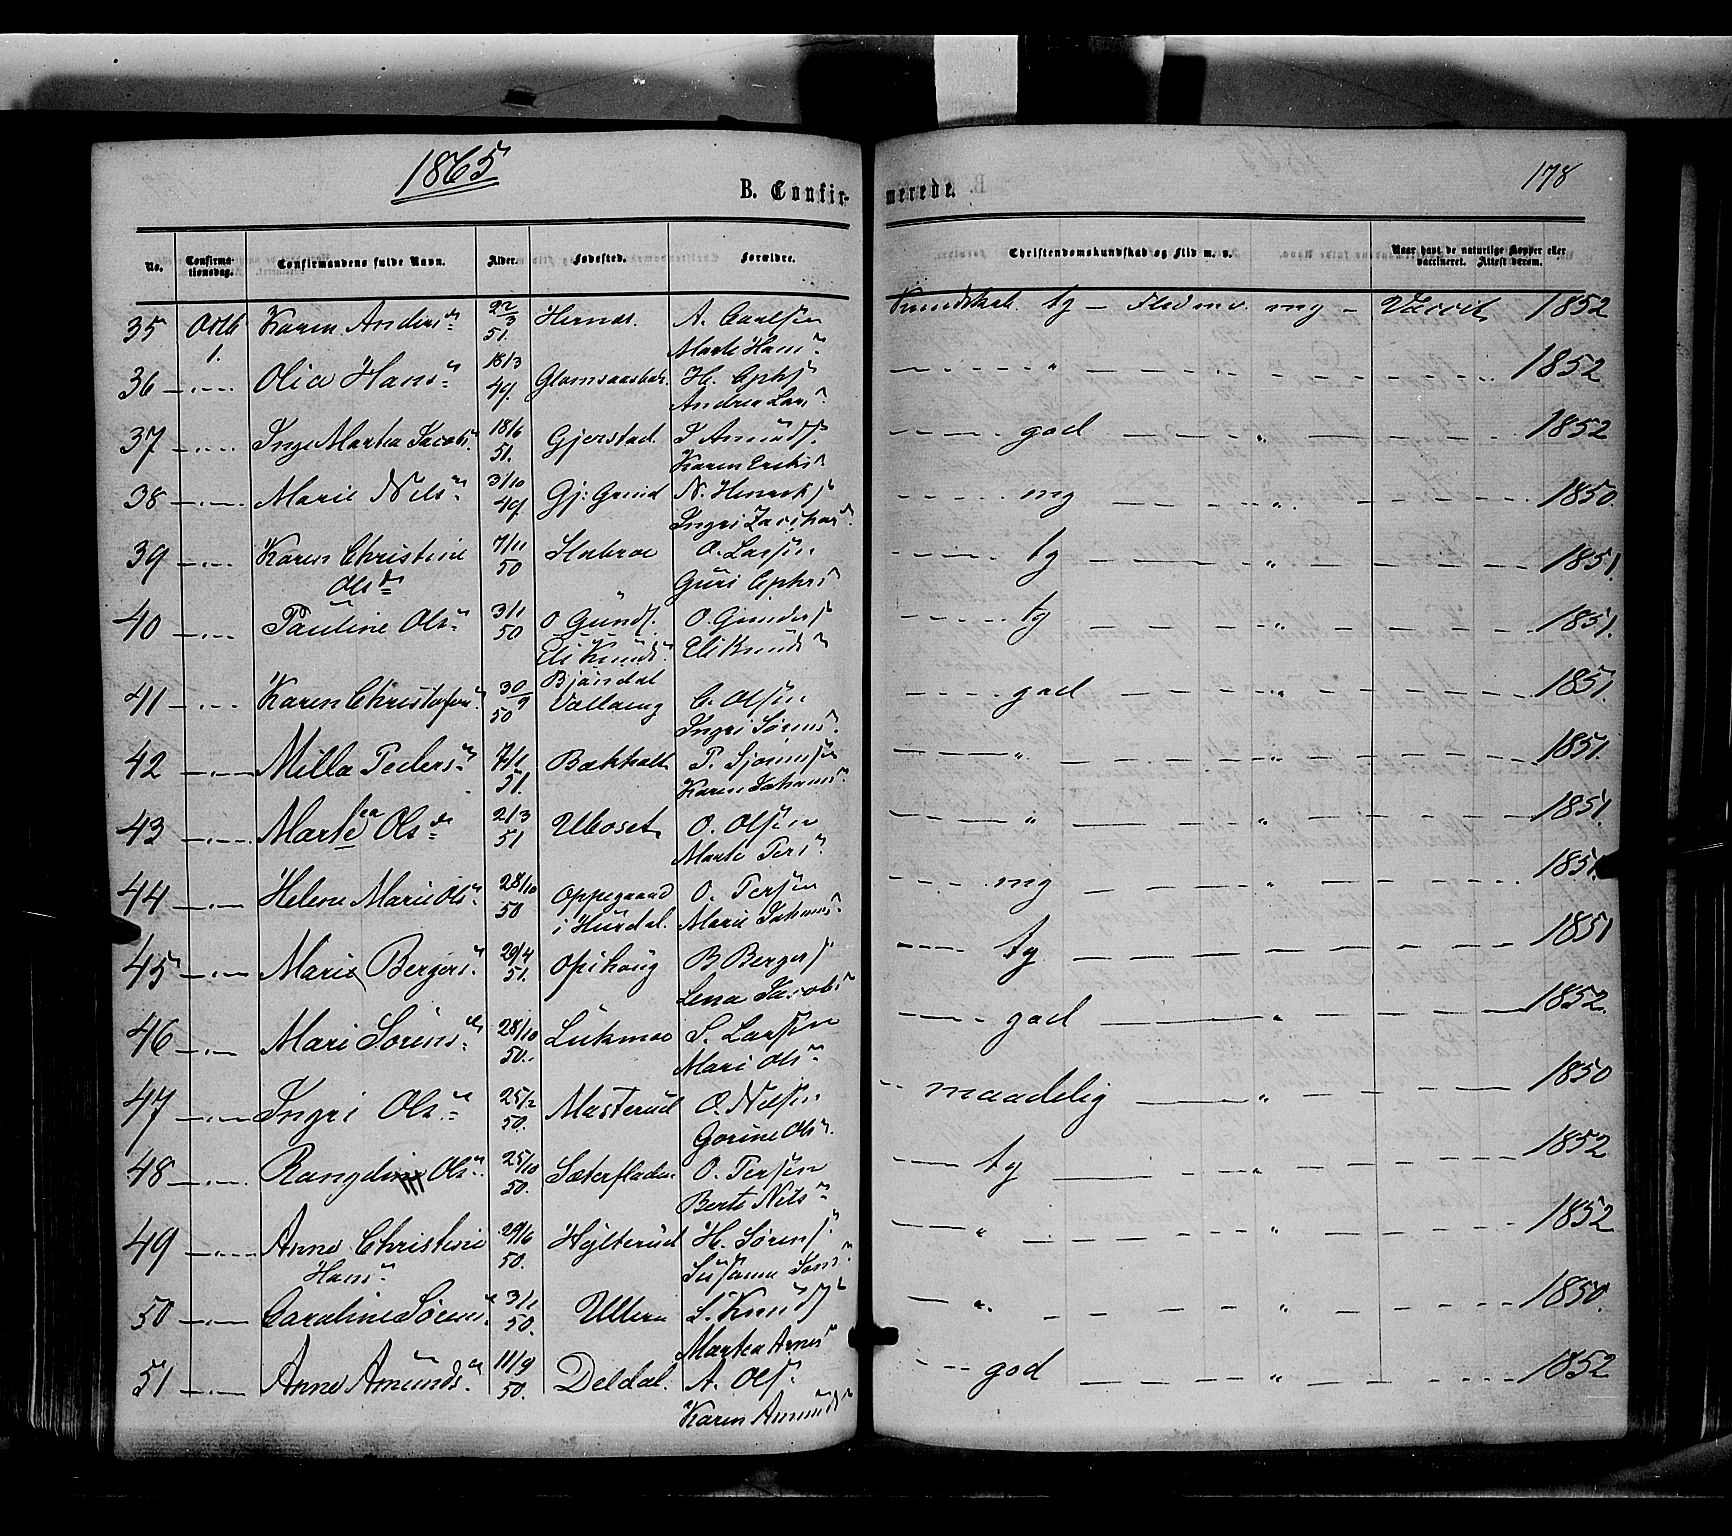 1865
B. Confir-
merede.
178
No.
Confirma-
tionsdag.
Confirmandens fulde Navn.
Alder.
Fødested.
Forældre.
Christendomskundskab og Flid m. v.
Naar havt de naturlige Kopper eller
vaccineret. Attest derom.
35 Octb 1. Karen Anders 22/3 51. Hernæs. A. Carlsen
Marte Hans
Kundskab tg – Flid m.v. mg – Vaccit 1852
36 Olia Hans 18/3 49. H.
Andrea Lars 1852
37 Inge Martea Jacobs 18/6 51. Gjerstad. Karen Eriks
god " 1852
38 Marie Nils 3/10 49. Gj: Grind N. Henriks
Ingri Zacchar
mg " 1850.
39 Karen Christine 7/11 50 O. Larsen
Ols Guri
tg " 1851.
40 Pauline Ols 3/1 50 O Gunds. O. Gunders
Eli Knuds. Eli Knuds
tg 1851.
41 Karen Christofers 30/9 50 Bjøndal
C. Olsen
Ingri Sørens
god " 1851.
42 Milla Peders 7/1 51. Bækholt P.
Karen Johanns
" " 1851.
43 Marte ea Ols 21/3 51 Uboset O. Olsen
Marte Pers
" " 1851.
44 Helene Marie Ols 28/10 50 Oppegaard O. Persen
i Hurdal. Marie Johanns
mg " 1851.
45 Marie Bergers 29/4 51. Opihaug B Bergers
Lena Jacobs
tg. 1851
46 Mari Sørens 28/10 50. Lukmoe S. Larsen
Mari Ols
god " 1852.
47 Ingri Ols 25/2 50. Masterud O. Nilsen
Gorine Ols
maadelig " 1850
48 Rangdi Ols 25/10 50. Sæterfladen O. Persen
Berte Nils
tg " 1852
49 Anne Christine 29/6 50. Hylterud H. Sørens.
Hans Susanna Sørens
" " 1852
50 Caroline Sørens 3/1 50. Ullern S. Knuds
Martea Arnes
" " 1850.
51 Anne Amunds 11/9 50. Deldal. A. Ols
Karen Amunds
god " 1852